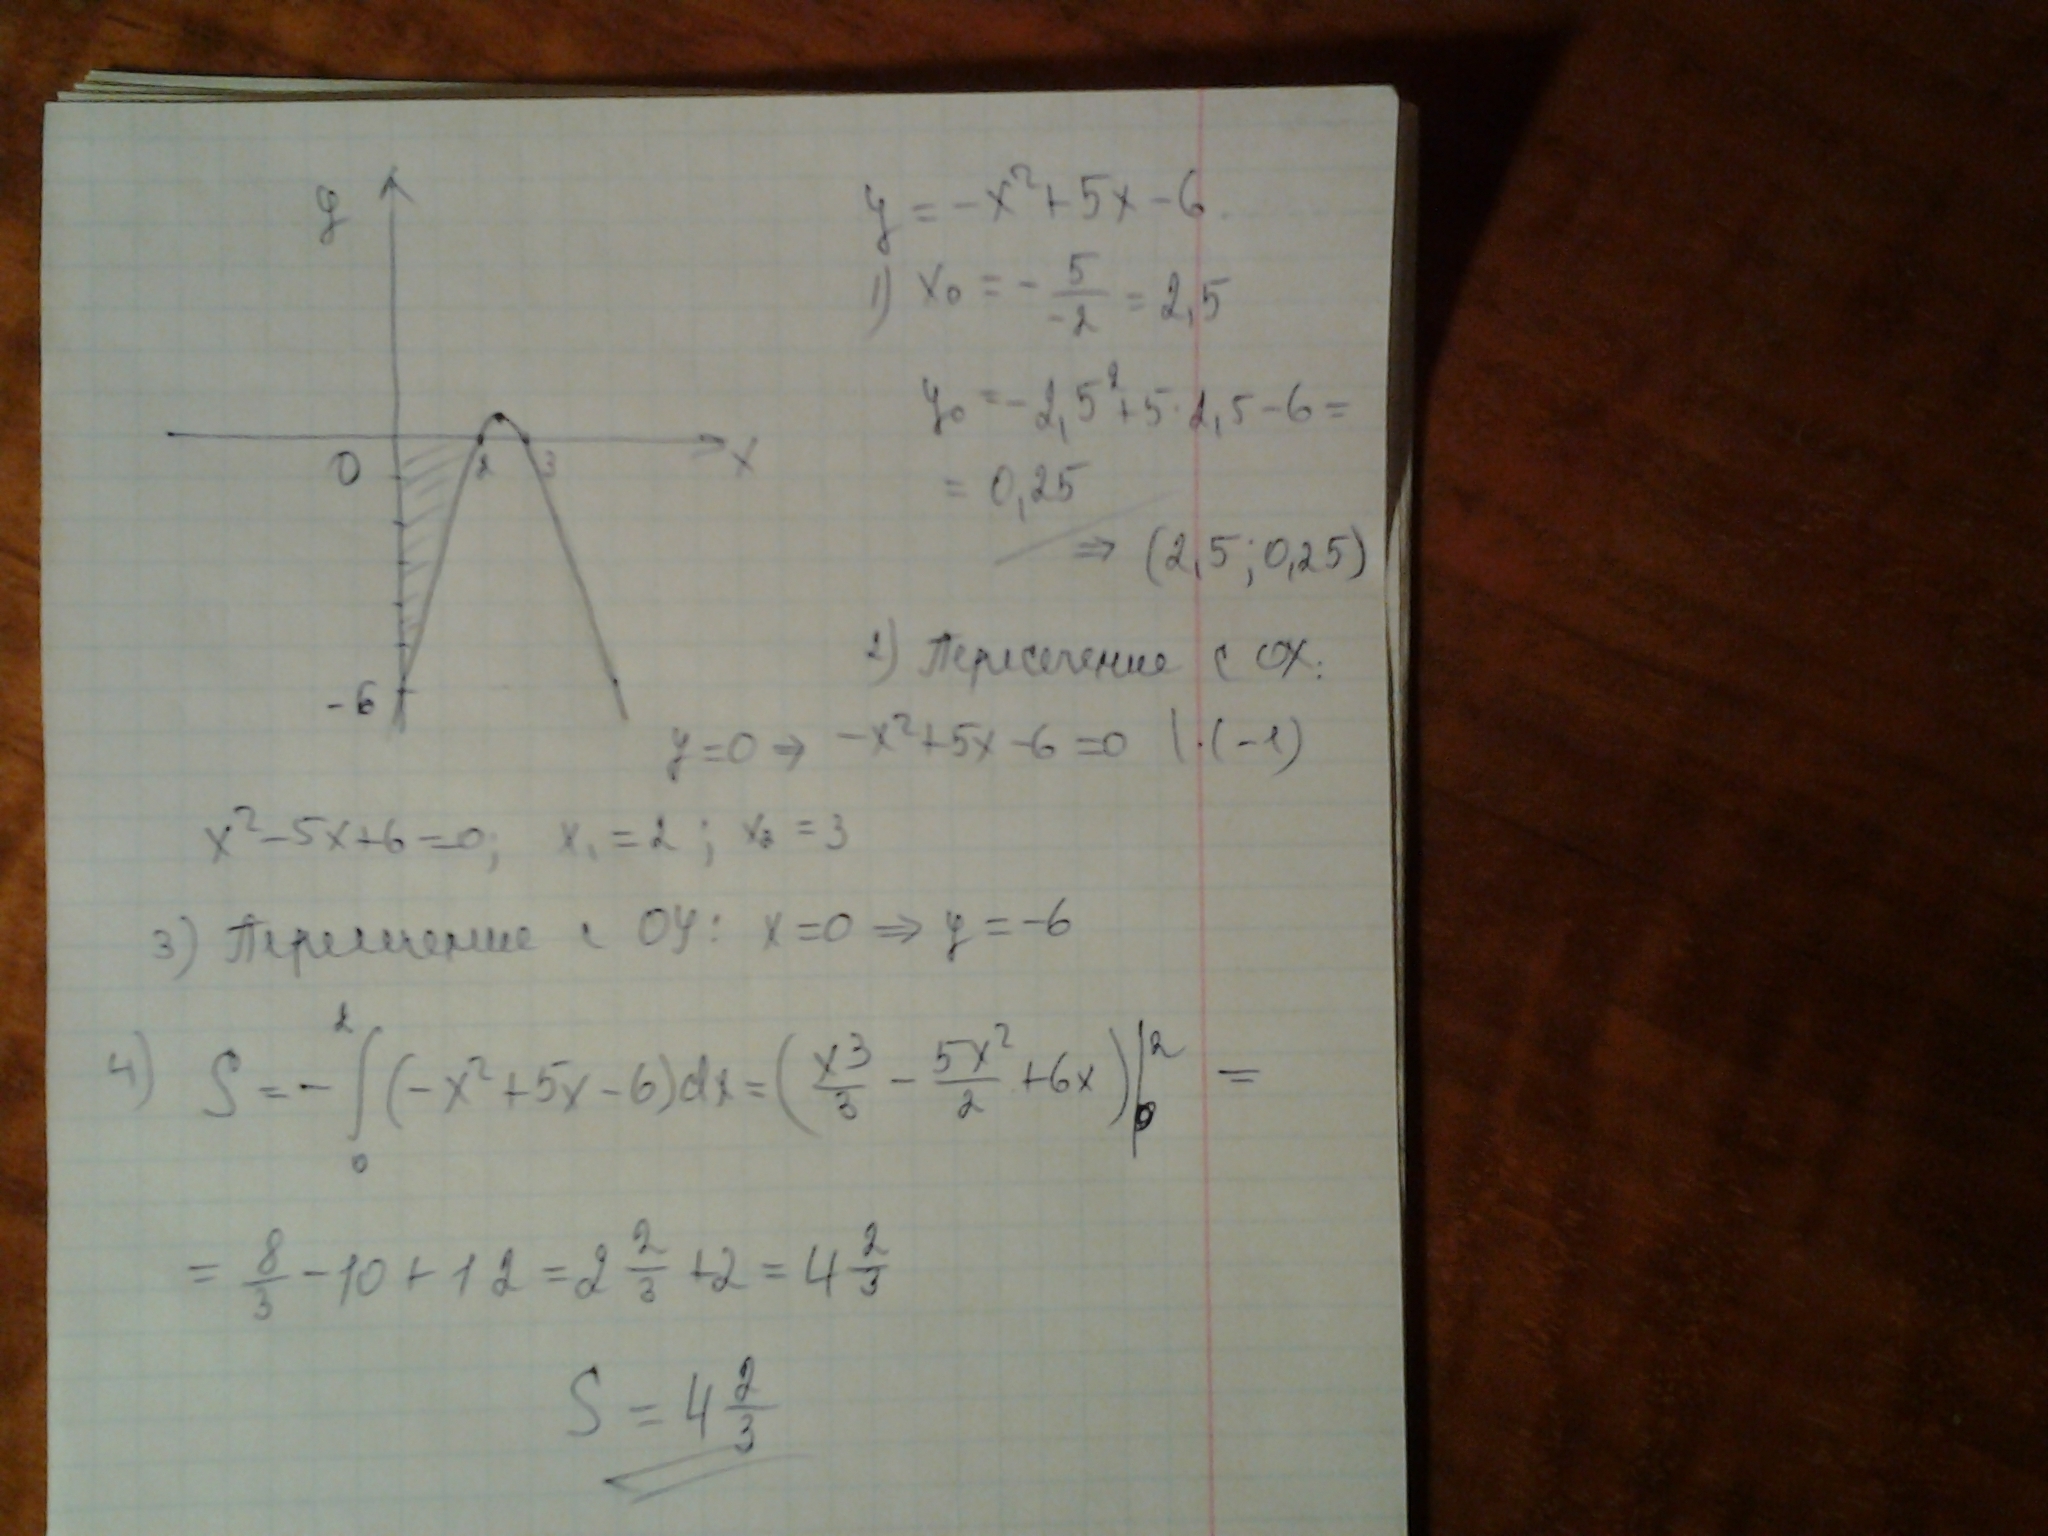 y
0
2
3
x
-6
y = -x² + 5x - 6
1) x₀ = - 5/-2 = 2,5
y₀ = -2,5² + 5 · 2,5 - 6 =
= 0,25
⇒ (2,5; 0,25)
2) Пересечение с OX:
y = 0 ⇒ -x² + 5x - 6 = 0 | · (-1)
x² - 5x + 6 = 0; x₁ = 2; x₂ = 3
3) Пересечение с OY: x = 0 ⇒ y = -6
4) S = - ∫₀² (-x² + 5x - 6)dx = (x³/3 - 5x²/2 + 6x)|₀² =
= 8/3 - 10 + 12 = 2 2/3 + 2 = 4 2/3
S = 4 2/3